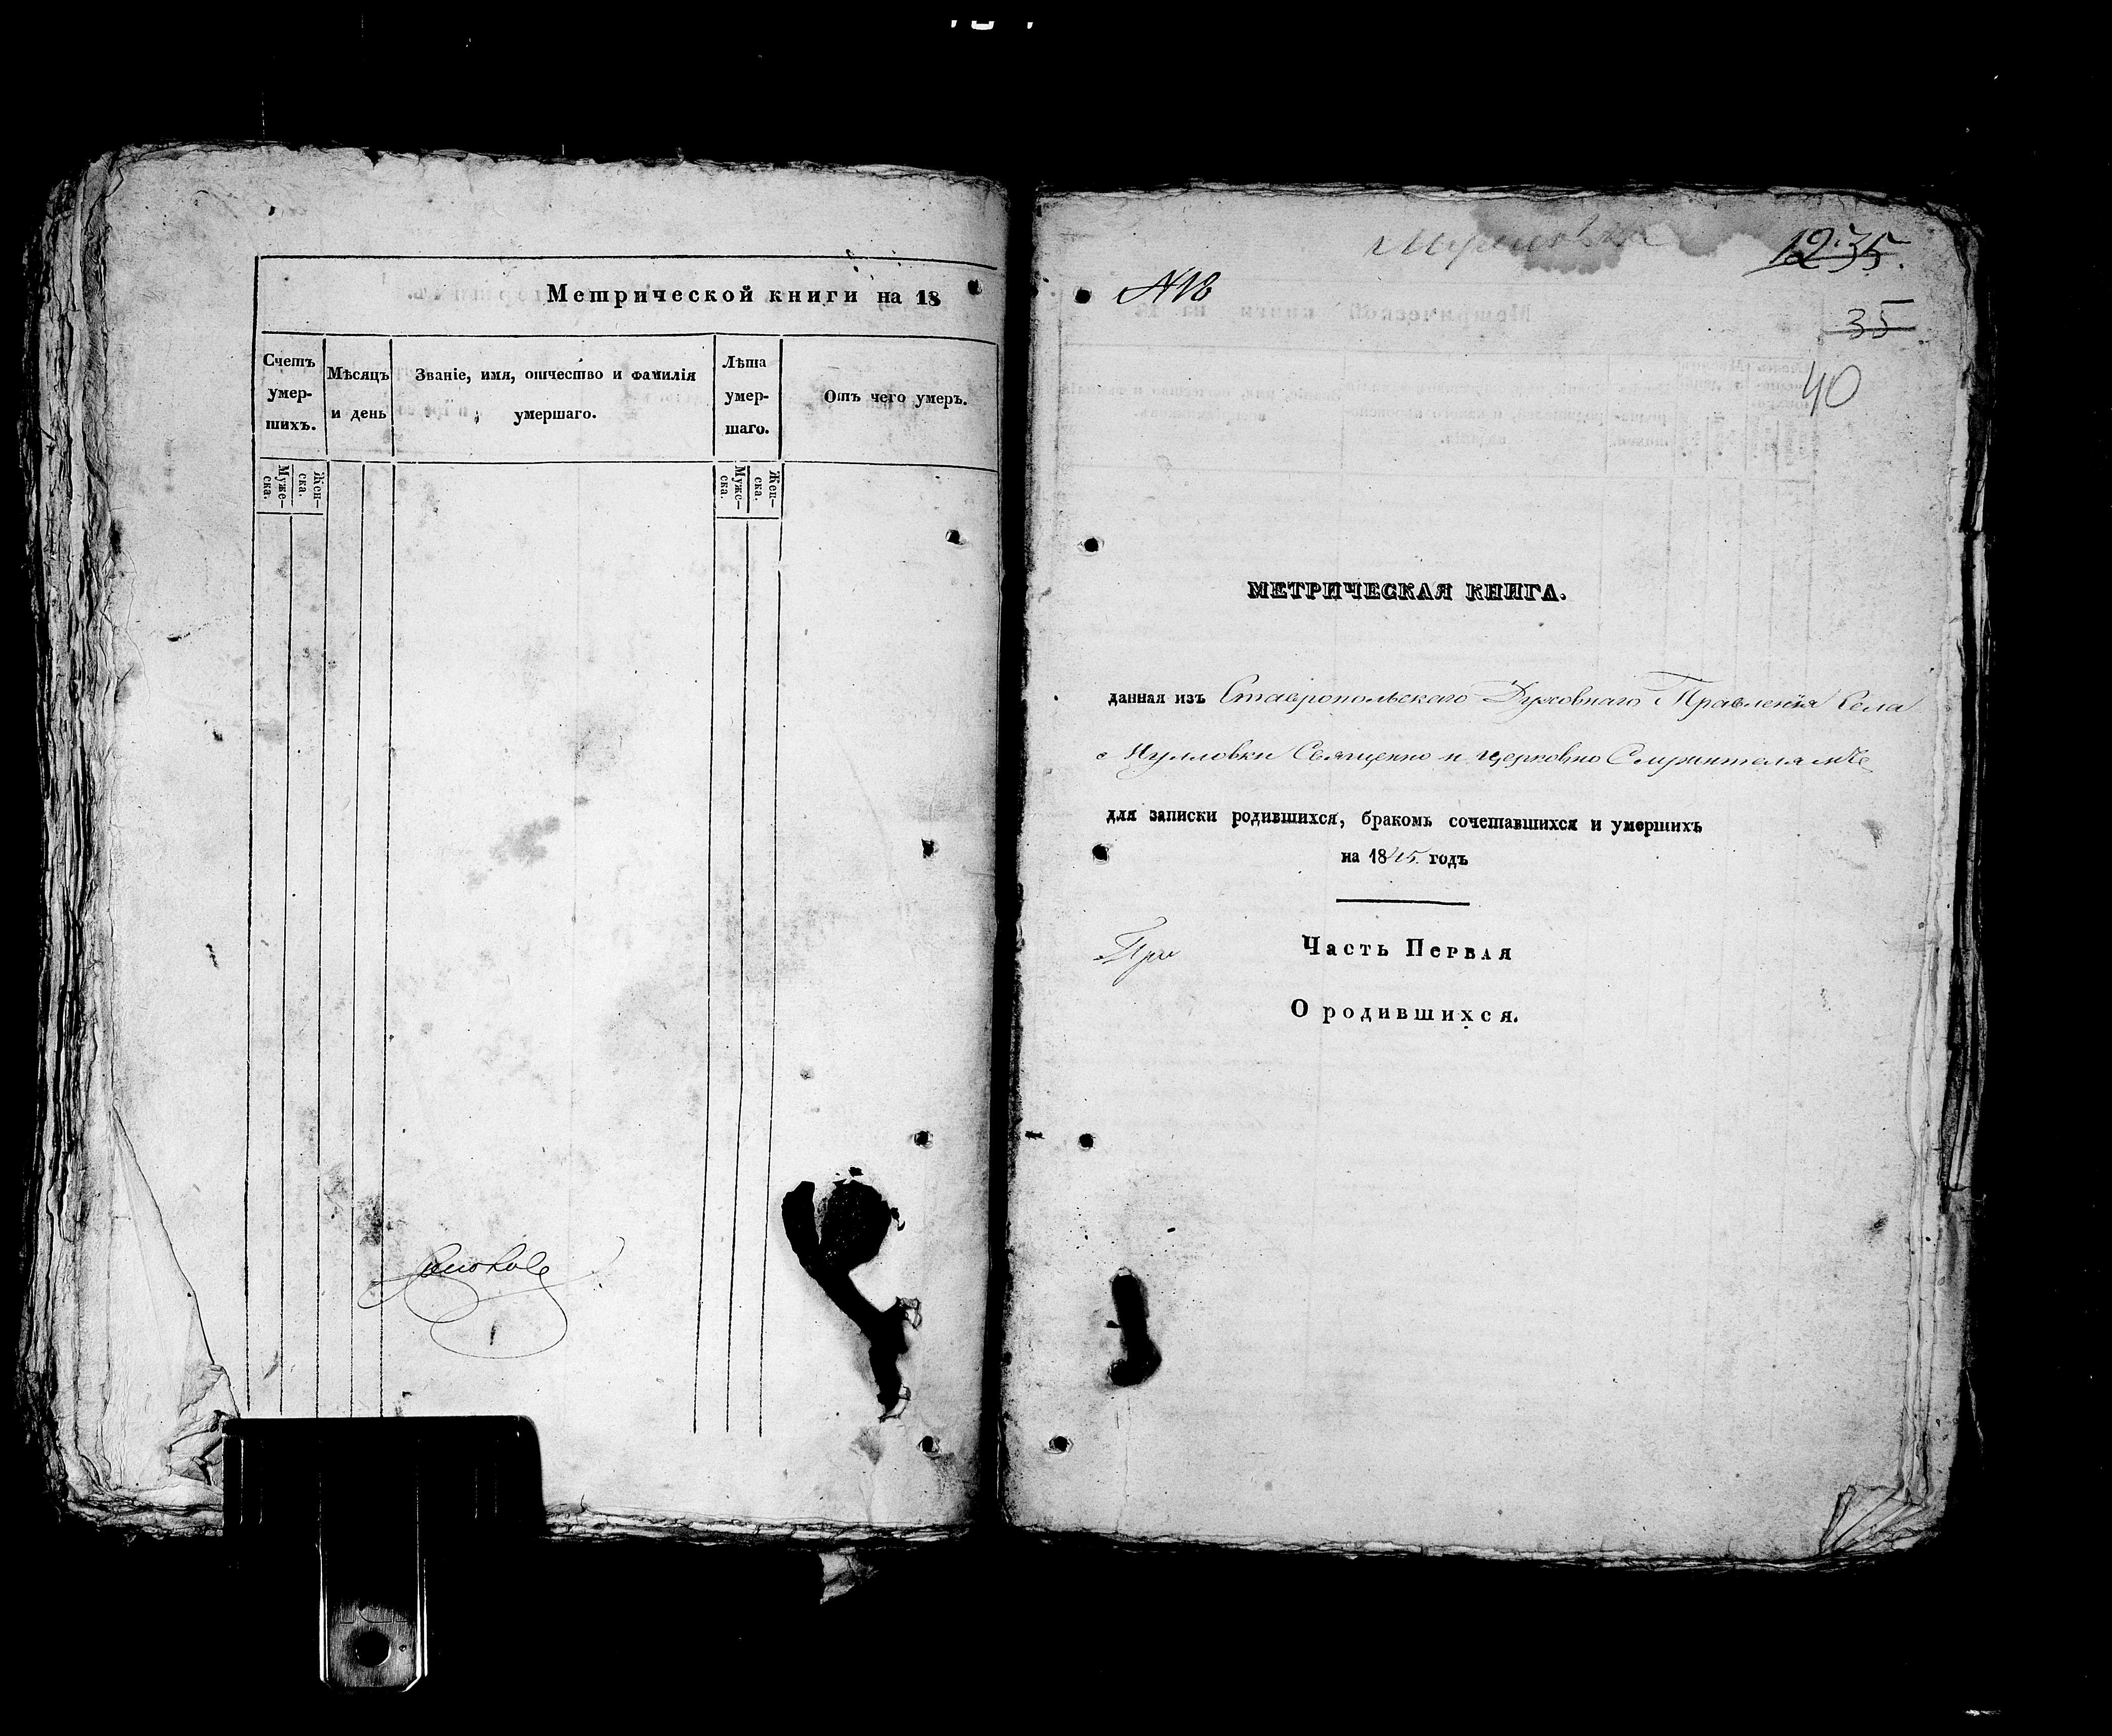 Метрической книги на 18
Счетъ умер-шихъ.
Мѣсяцъ и день
Званіе, имя, отчество и фамилія умершаго.
Лѣта умер-шаго.
Отъ чего умеръ.
Муже-ска.
Жен-ска.
Муже-ска.
Жен-ска.
1235.
35
40
МЕТРИЧЕСКАЯ КНИГА.
данная изъ Ставропольскаго Духовнаго Правленія Села
Священно и церковно Служителямъ
для записки родившихся, бракомъ сочетавшихся и умершихъ
на 18 годъ
Часть Первая
О родившихся.